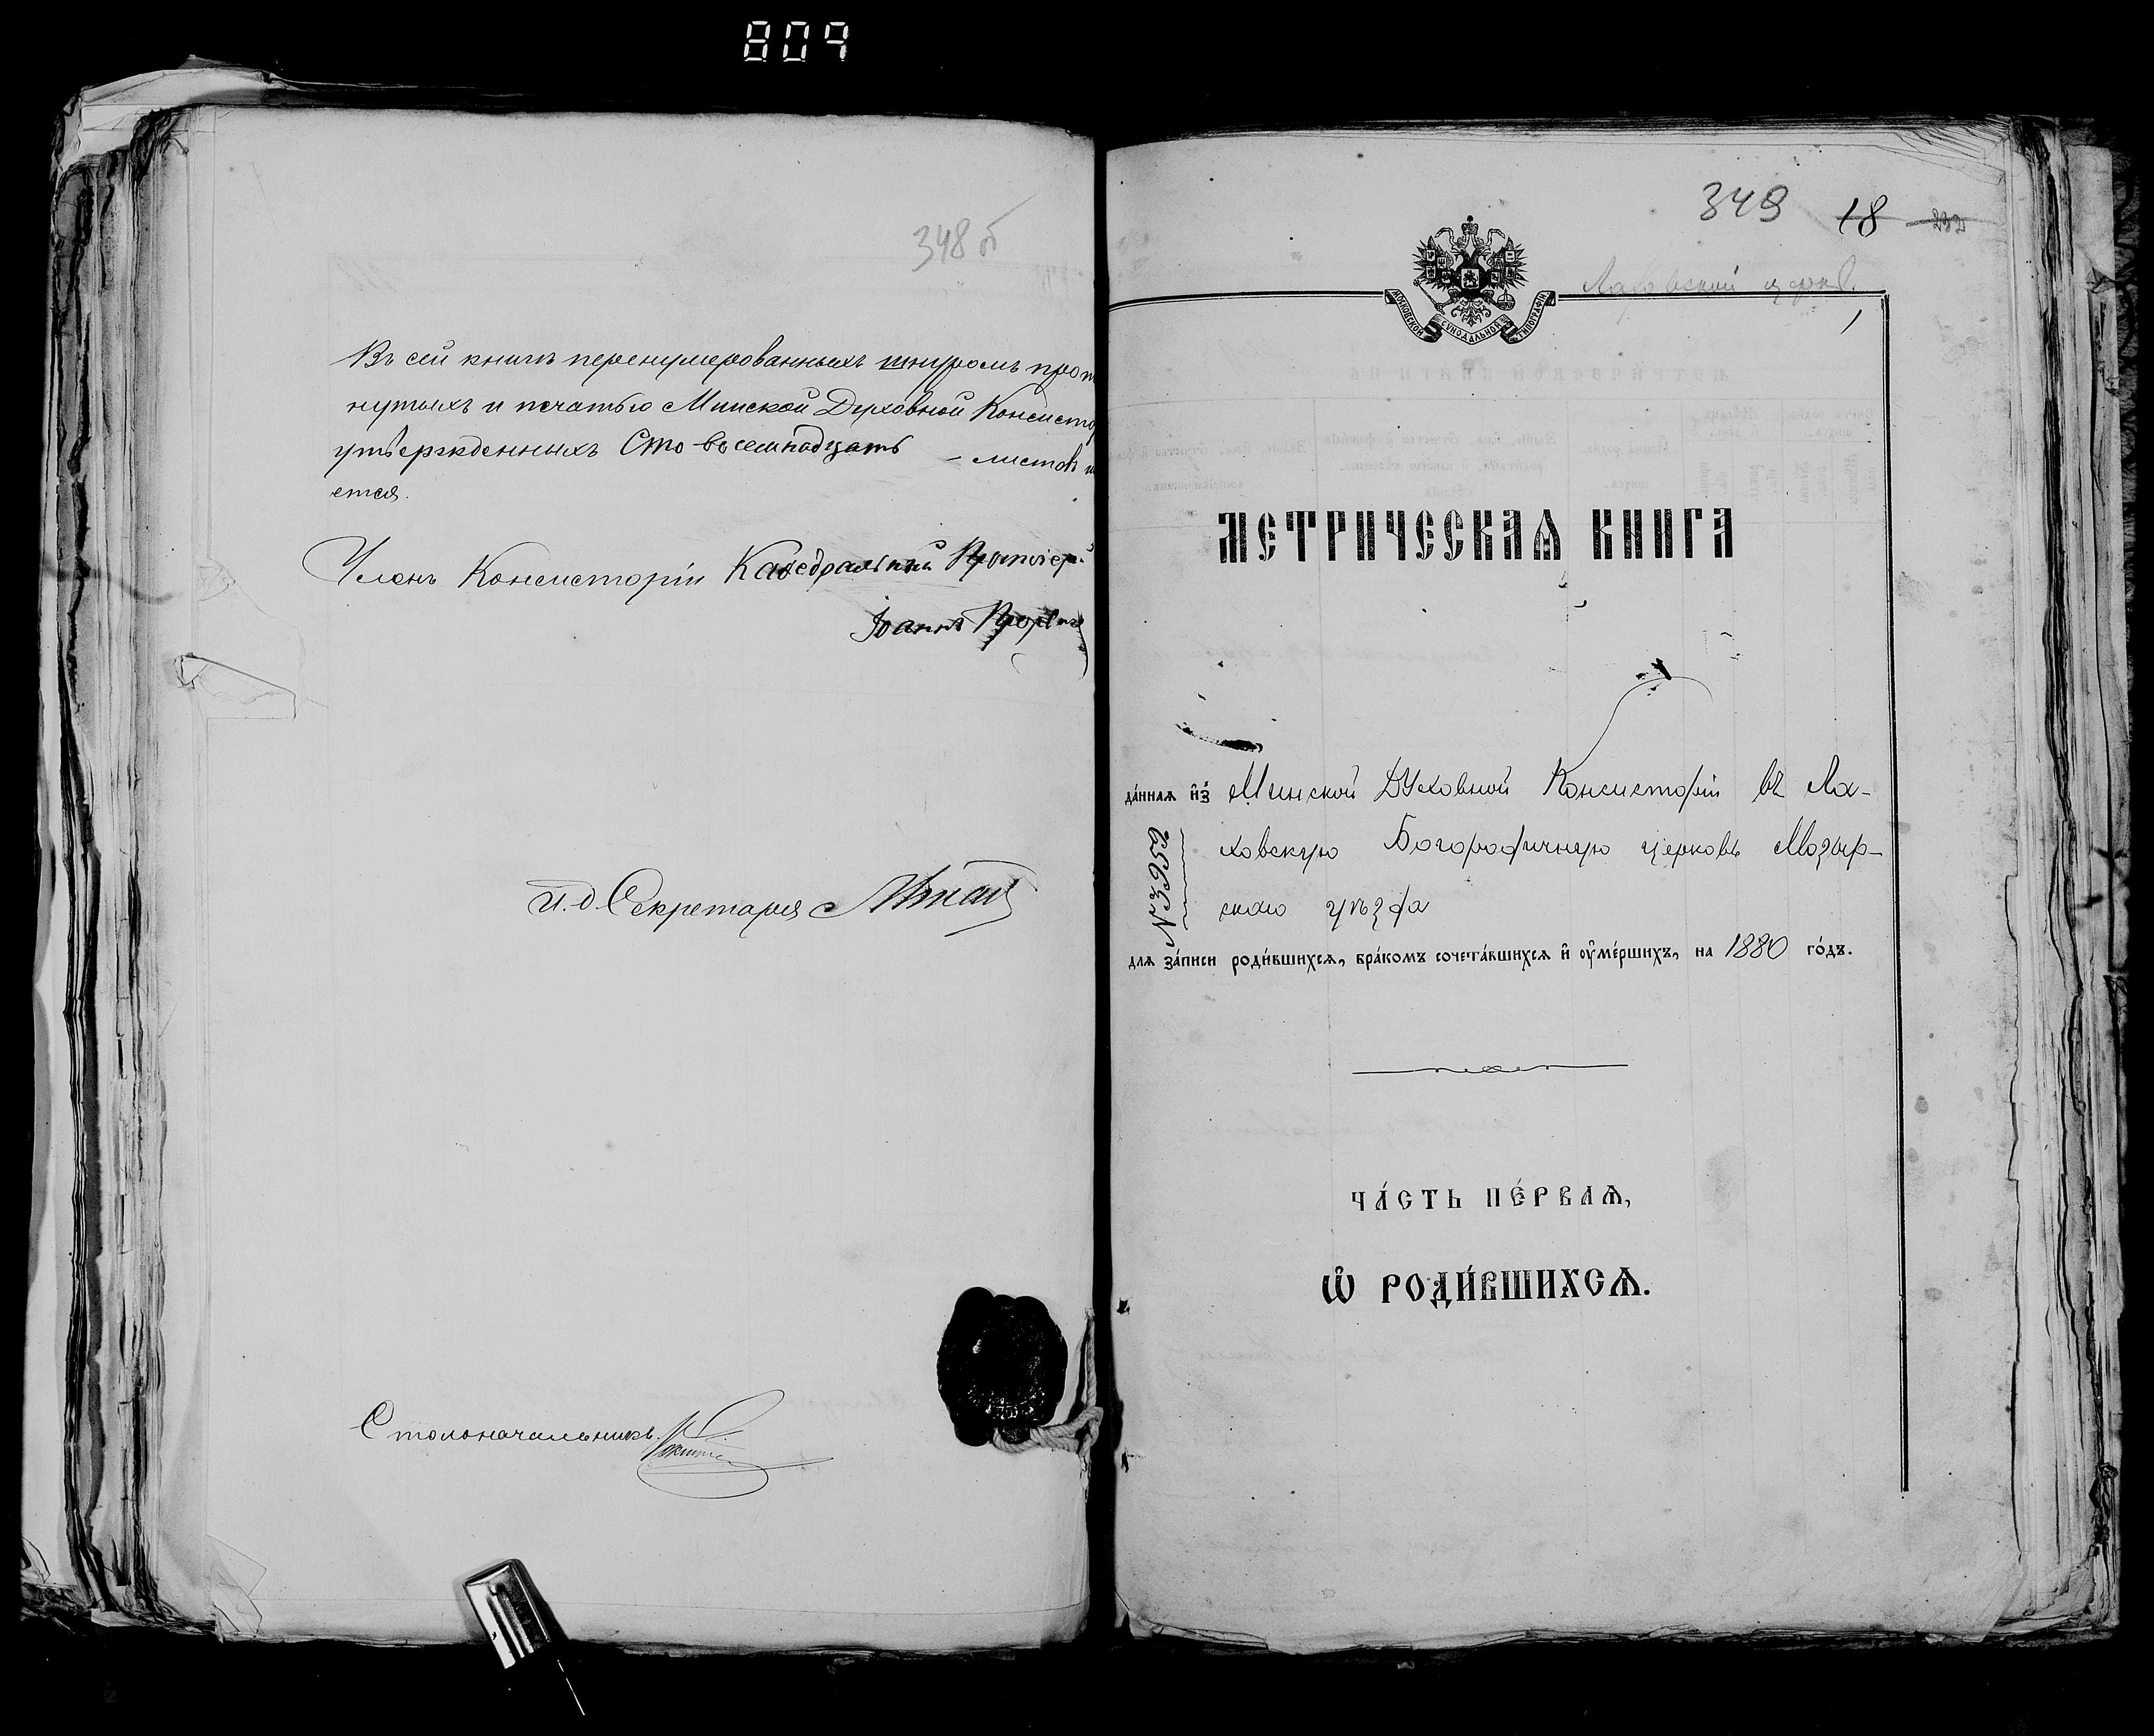 809
348 об
Въ сей книгѣ перенумерованныхъ шнуромъ прот
нутыхъ и печатью Минской Духовной Консисто
утвержденныхъ Сто восемнадцать – листовъ
ется.
Членъ Консисторіи Каѳедральный Протоіер
Іоаннъ
И. д. Секретаря
Столоначальникъ
349 18 232
МОСКОВСКОЙ СѴНОДАЛЬНОЙ ТИПОГРАФІИ
Лаховской церкв.
1
МЕТРИЧЕСКАѦ КНИГА
да́ннаѧ и҆з̾ Минской Духовной Консисторіи въ Ла-
ховскую Богородичную церковь Мозыр-
скаго уѣзда
№ 3959
длѧ за́писи роди́вшихсѧ, бра́комъ сочета́вшихсѧ и҆ ᲂу҆ме́ршихъ, на 1880 го́дъ.
ЧА́СТЬ ПЕ́РВАѦ,
Ѽ РОДИ́ВШИХСѦ.